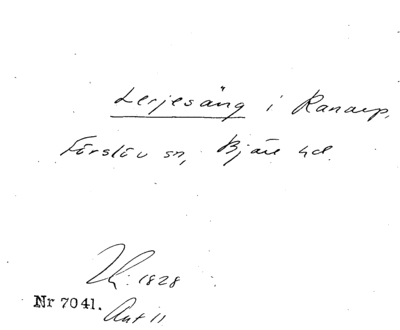 Lerjesäng i Ranarp,
Förslöv sn, Bjäre hd.
1828
Nr 7041.